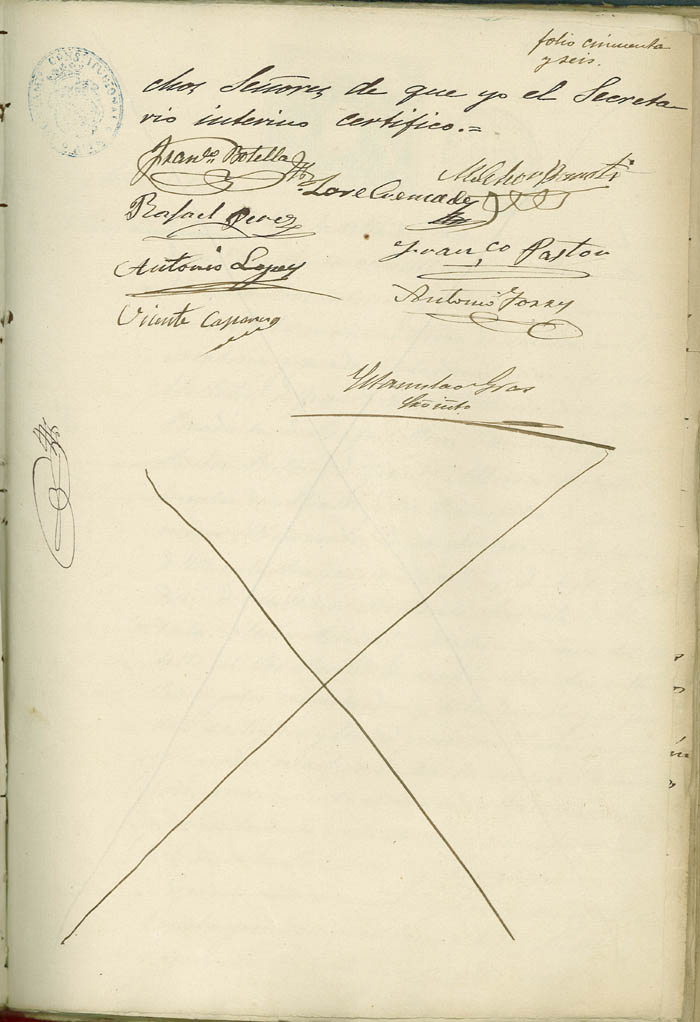 folio cincuenta
y seis.
chos Señores, de que yo el Secreta
rio interino certifico.=
Franco. Botella
José Cremades
Melchor
Rafael Perez
Franco Pastor
Antonio Lopez
Antonio Torres
Vicente
Gras